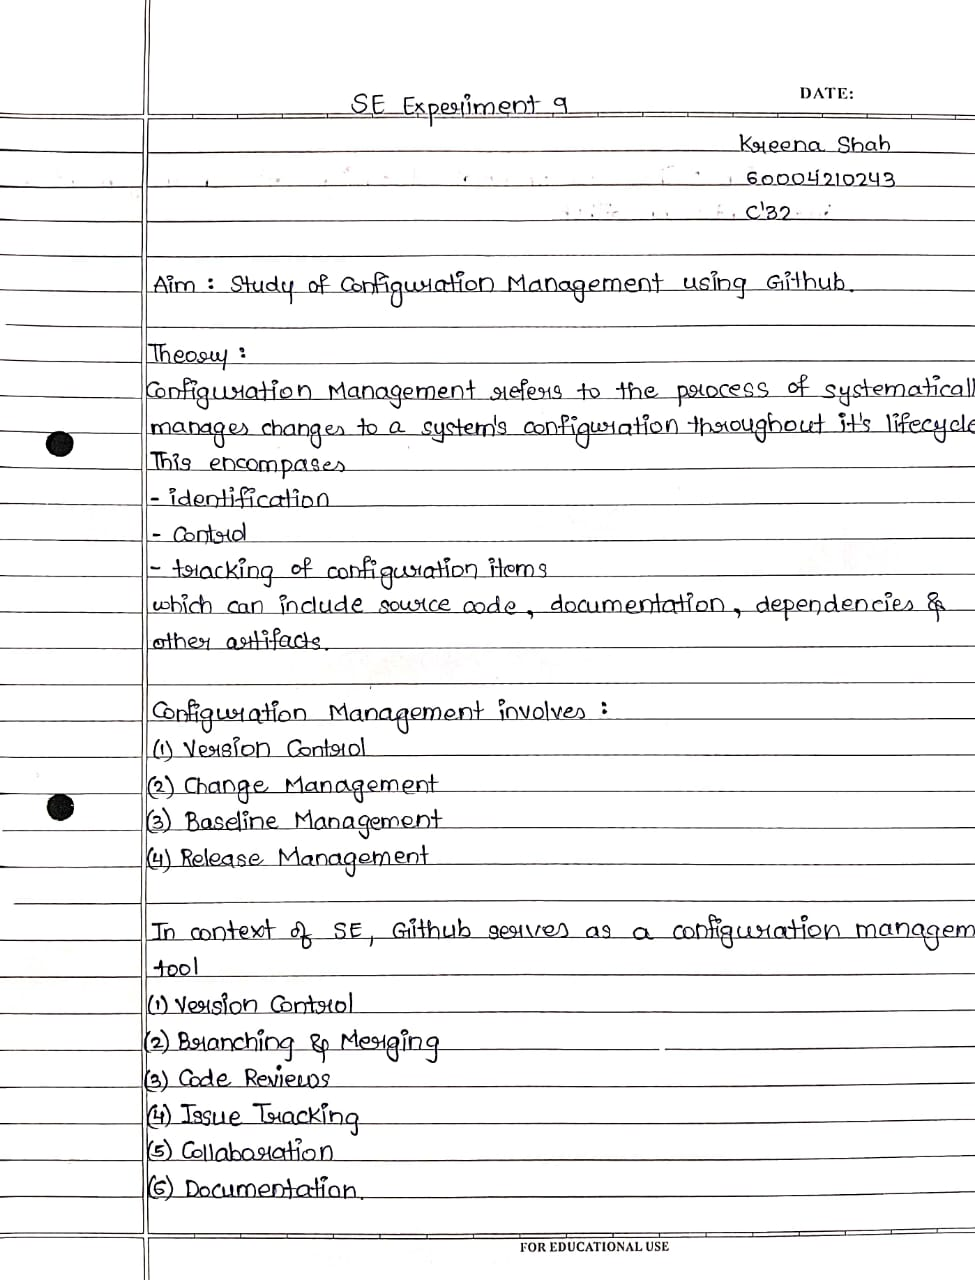 SE Experiment 9
DATE:
Kreena Shah
60004210243
C'32
Aim : Study of Configuration Management using Github.
Theory :
Configuration Management refers to the process of systematicall
manages changes to a system's configuration throughout it's lifecycle
This encompases
- identification
- Control
- tracking of configuration items
which can include source code, documentation, dependencies &
other artifacts.
Configuration Management involves :
(1) Version Control
(2) Change Management
(3) Baseline Management
(4) Release Management
In context of SE, Github serves as a configuration managem
tool
(1) Version Control
(2) Branching & Merging
(3) Code Reviews
(4) Issue Tracking
(5) Collaboration
(6) Documentation.
FOR EDUCATIONAL USE